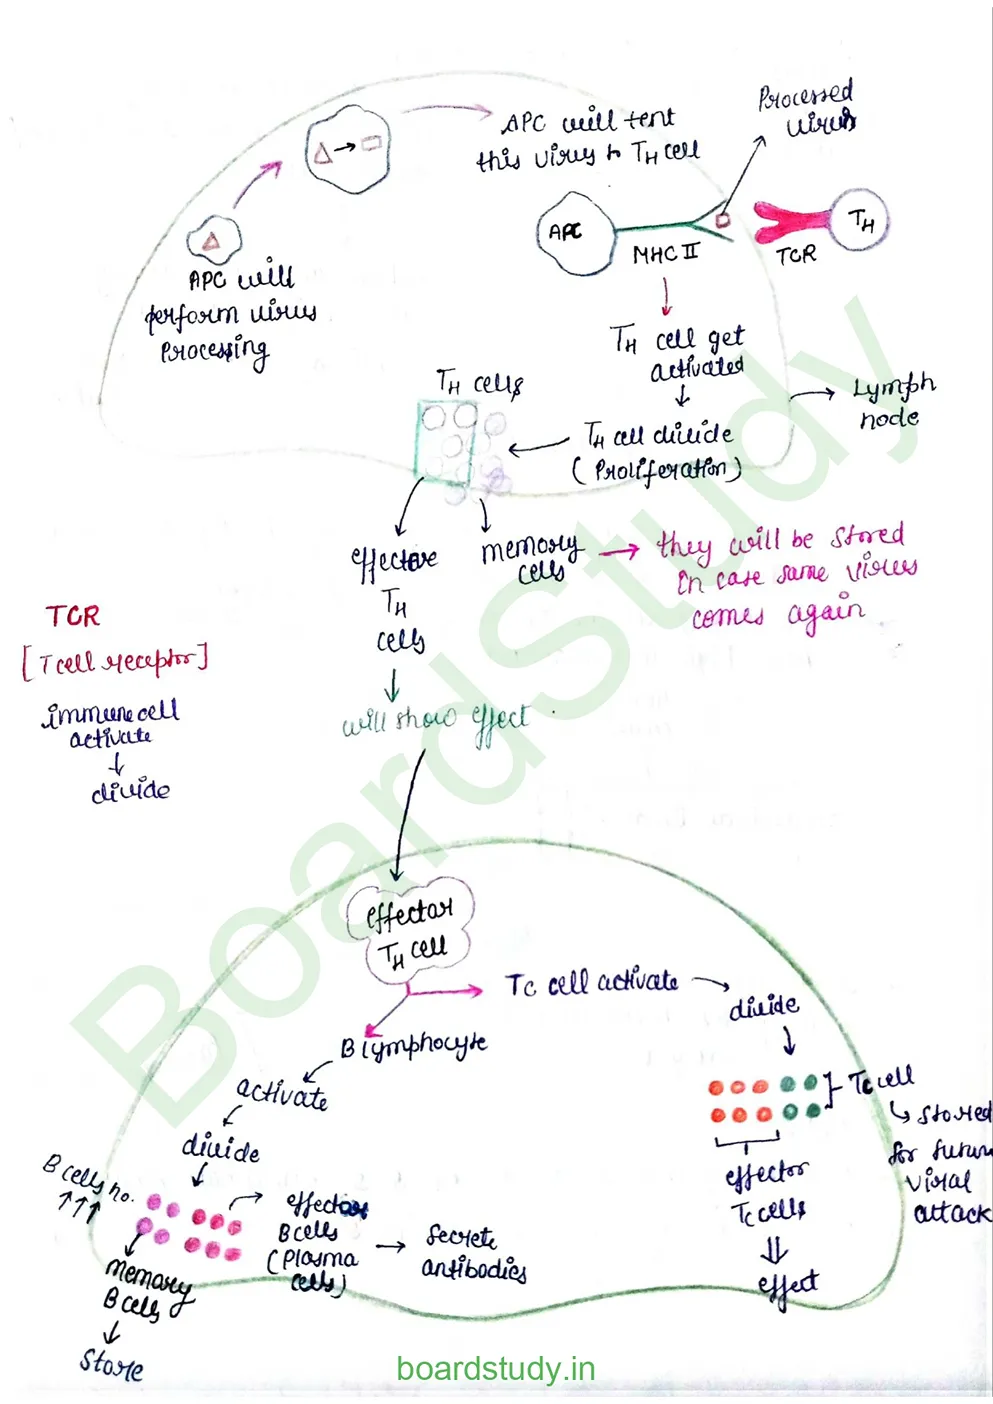 APC will tent
this virus to TH cell
Processed
virus
APC
MHC II
TCR
TH
APC will
perform virus
Processing
TH cell get
activated
TH cells
TH cell divide
(Proliferation)
Lymph
node
effective
TH
cells
memory
cells
they will be stored
In case same virus
comes again
TCR
[T cell receptor]
immune cell
activate
divide
will show effect
effector
TH cell
Tc cell activate
divide
B lymphocyte
activate
divide
Tc cell
stored
for future
viral
attack
effector
Tc cells
effect
B cells no.
effector
B cells
(Plasma
cells)
secrete
antibodies
memory
B cells
store
BoardStudy
boardstudy.in